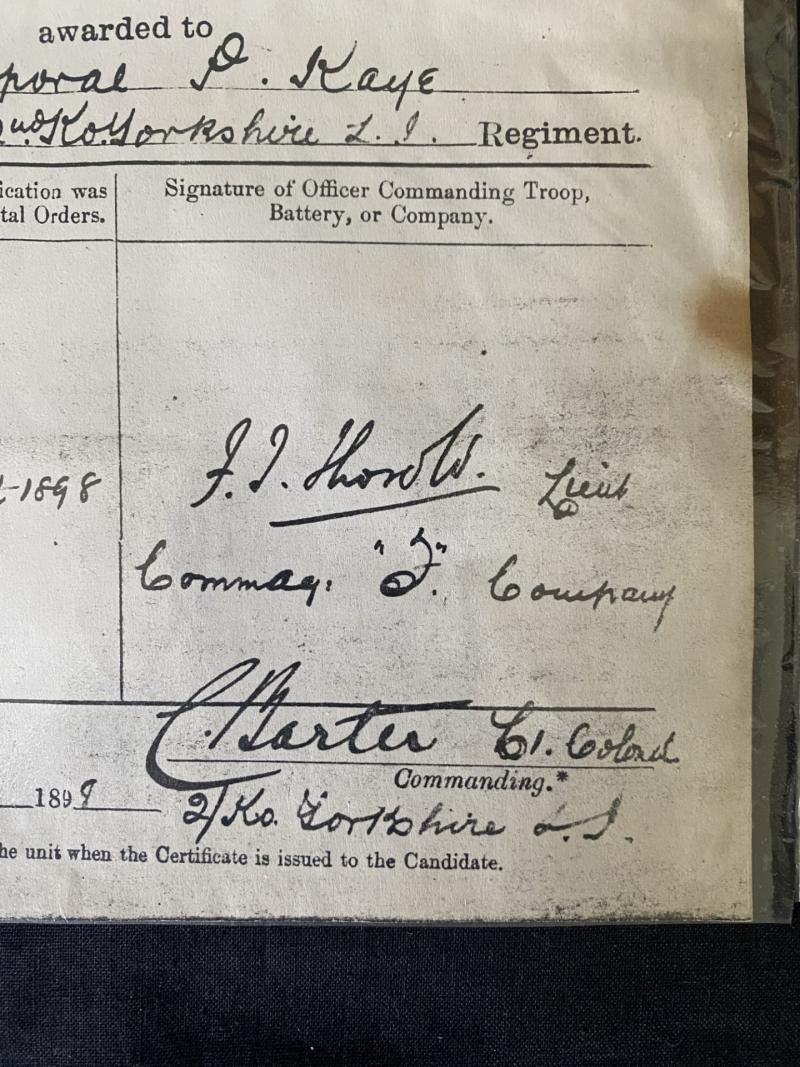 awarded to
poral P. Kaye
2nd Ko. Yorkshire L. I. Regiment.
ication was
tal Orders.
Signature of Officer Commanding Troop,
Battery, or Company.
-1898
F. I. Lieut
Commdg: "F". Company
C. Barter Lt. Colonel
Commanding.*
1898
2/Ko. Yorkshire L. I.
he unit when the Certificate is issued to the Candidate.